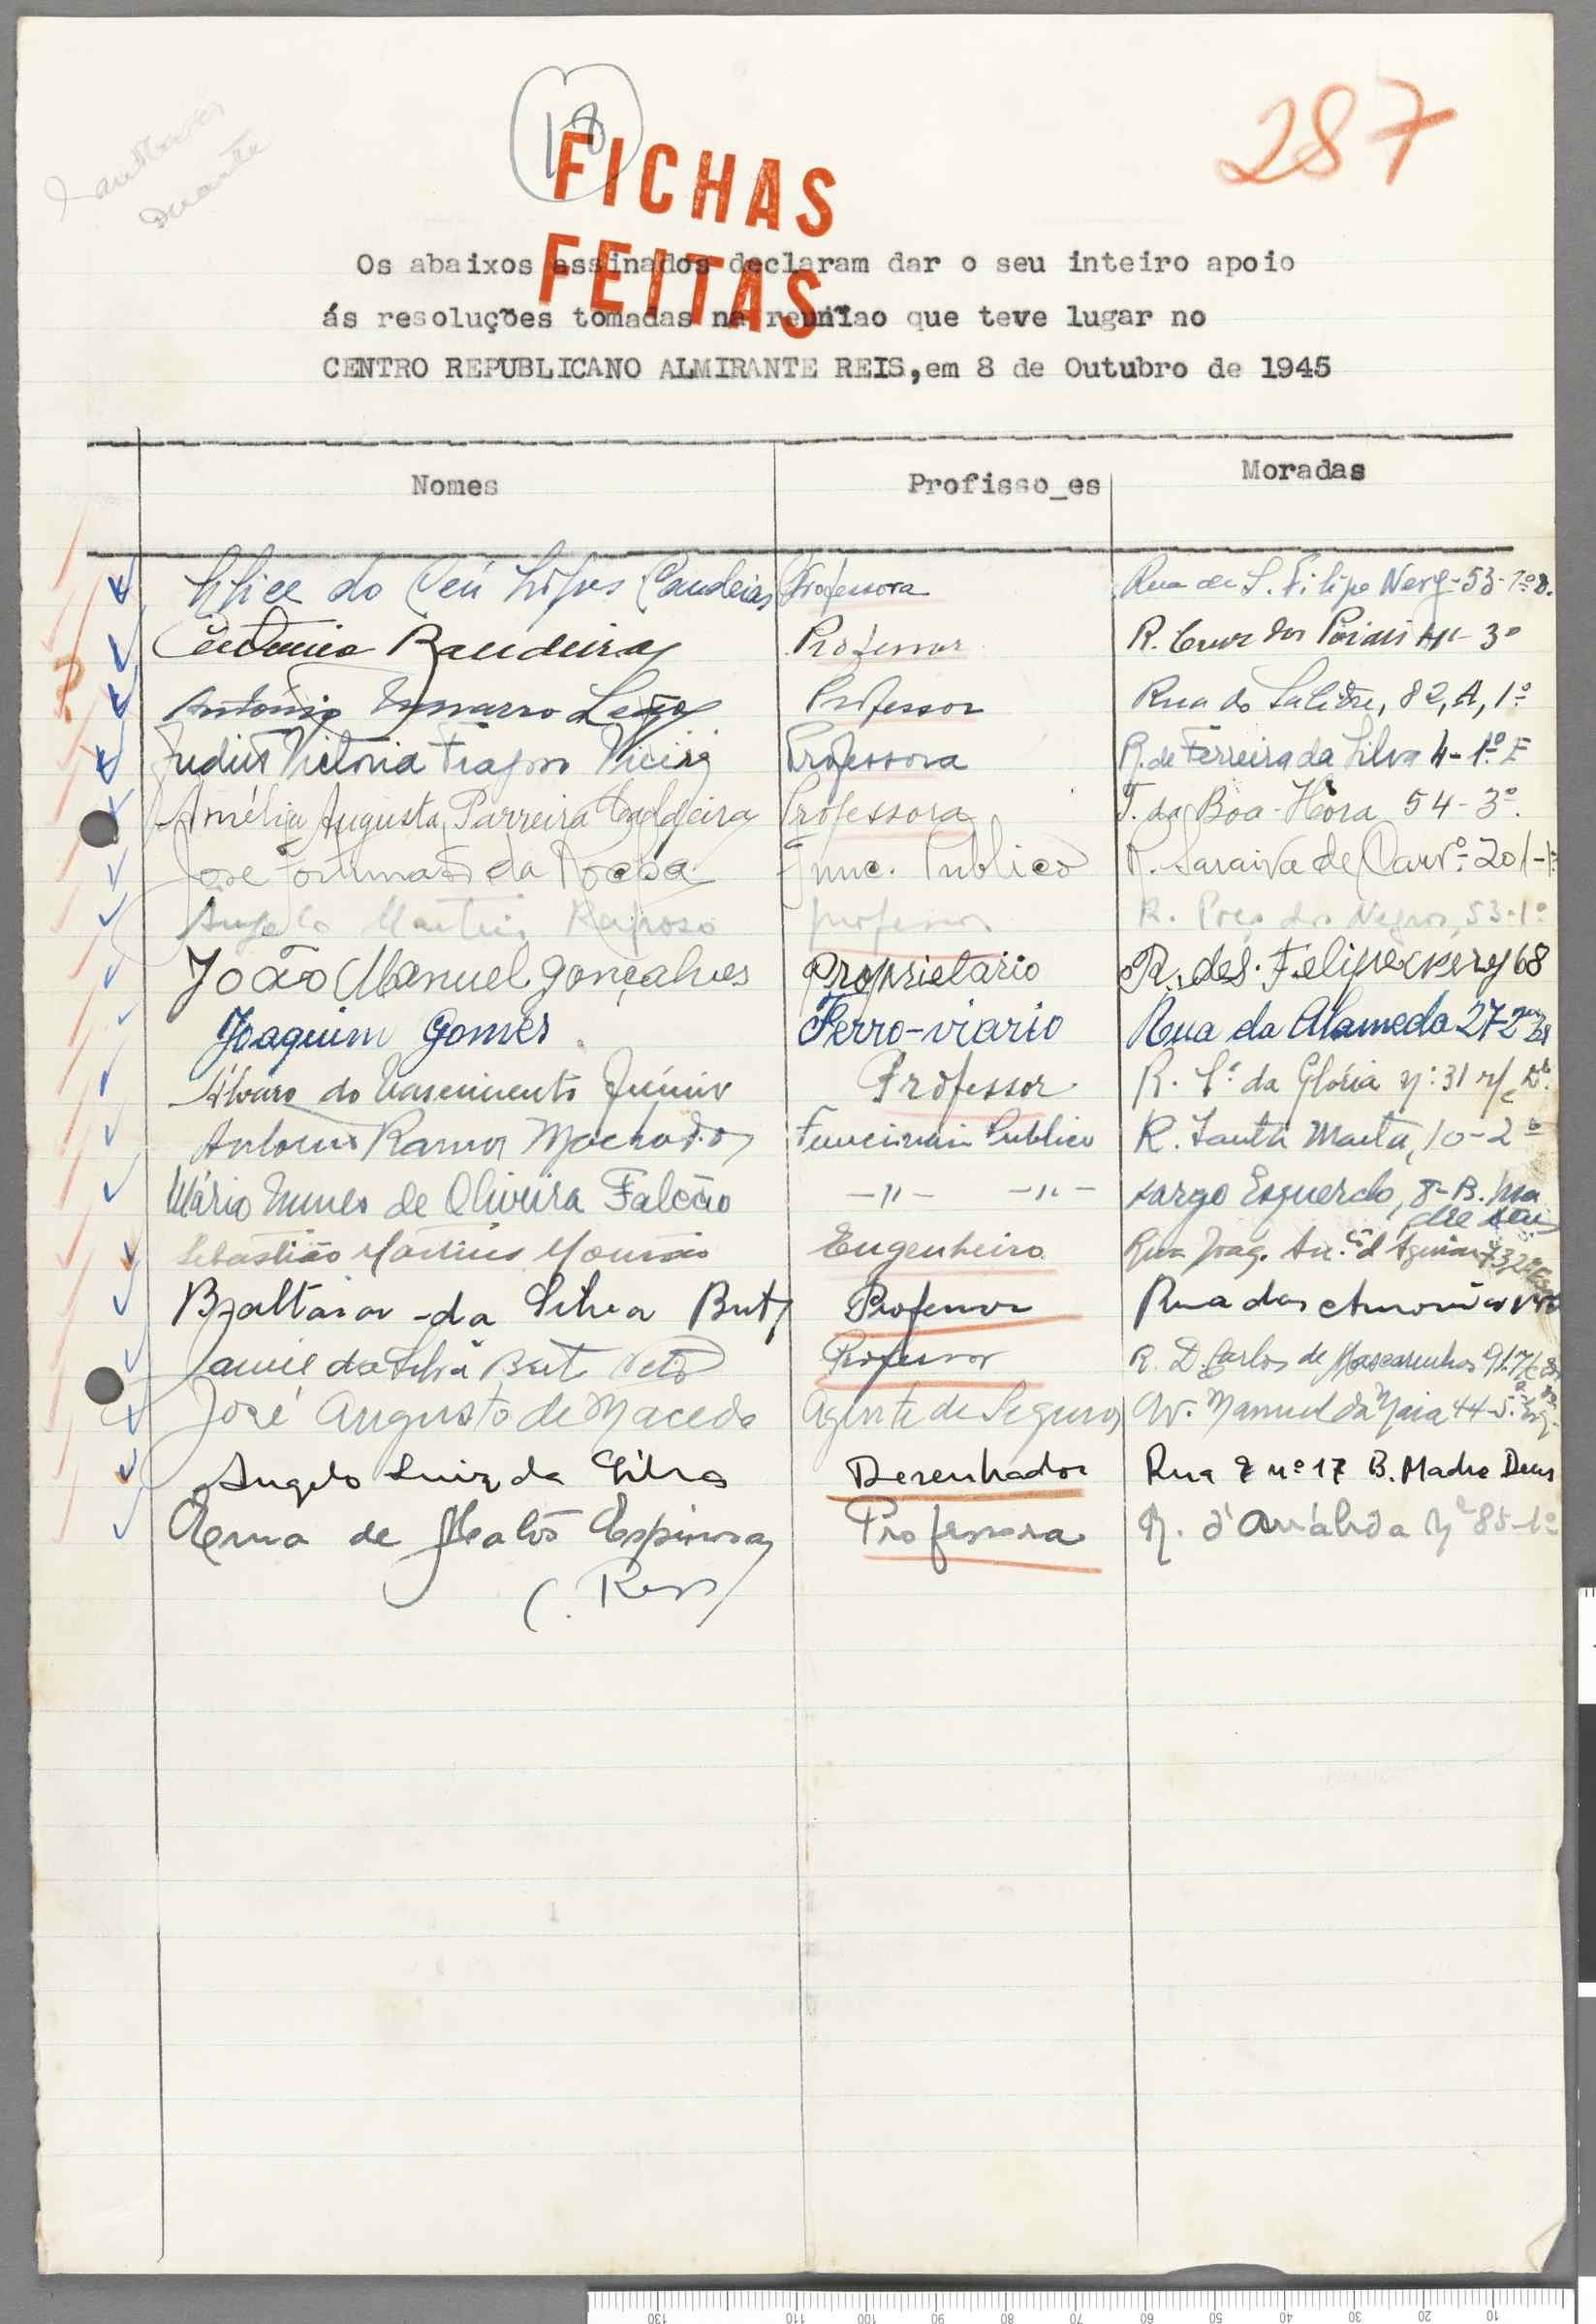 18
287
FICHAS
FEITAS
Duarte
Os abaixos assinados declaram dar o seu inteiro apoio
ás resoluções tomadas na reunião que teve lugar no
CENTRO REPUBLICANO ALMIRANTE REIS,em 8 de Outubro de 1945
Nomes Profisso_es Moradas
Alice do Céu Lopes Candeias Professora Rua de S. Filipe Nery-53-1º D.
Bandeira Professor R. Cruz dos Poiais 3º
António Leão Professor Rua do Salitre, 82, A, 1º
Victoria Vieira Professora R. de Ferreira da Silva 4-1º E
Amélia Augusta Parreira Caldeira Professora T. da Boa-Hora 54-3º.
José Fortunato da Rocha Func. Publico R. Saraiva de Carvº. 201-1º
Angelo Martins Raposo professor R. Poço dos Negros, 53-1º
João Manuel Gonçalves Proprietario R. de S. Felipe Nery 68
Joaquim Gomes. Ferro-viario Rua da Alameda 27-2º
Álvaro do Nascimento Júnior Professor R. Sª da Glória nº 31 r/c
Antonio Ramos Machado Funcionario Publico R. Santa Marta, 10-2º
Mário Nunes de Oliveira Falcão -"- -"- Largo Esquerdo, 8-B. Ma
dre Deus
Sebastião Martins Mourão Engenheiro Rua Joaq. Antº d'Aguiar 73, 2º
Baltasar da Silva Brito Professor Rua das Amoreiras
da Silva Brito Neto Professor R. D. Carlos de Mascarenhas
José Augusto de Macedo Agente de Seguros Av. Manuel da Maia 44-5.º
Angelo Luiz da Silva Desenhador Rua 7 nº 17 B. Madre Deus
Ema de Matos Espinosa Professora R. d'Arrábida Nº 85-1º